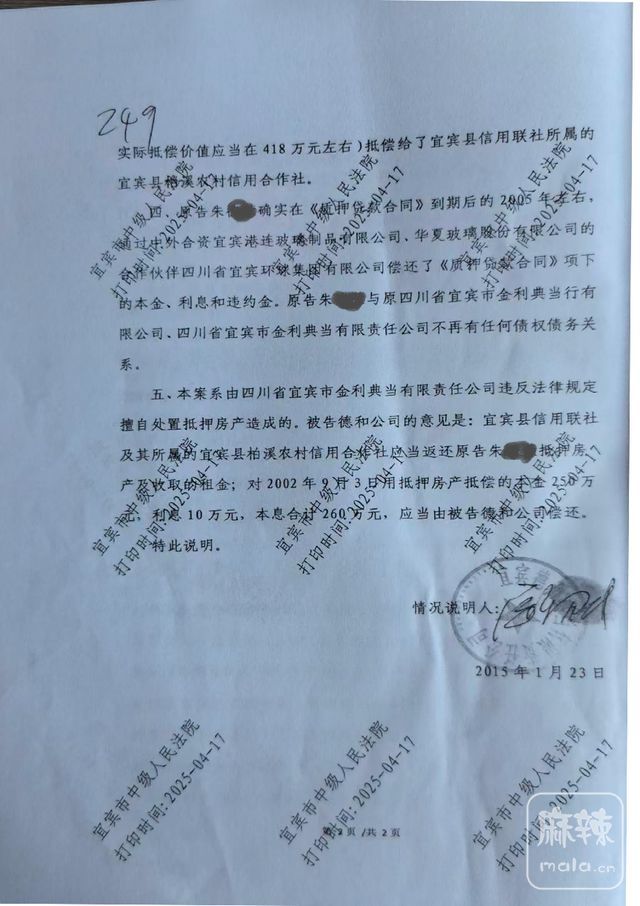 249
实际抵偿价值应当在418万元左右)抵偿给了宜宾县信用联社所属的
宜宾县柏溪农村信用合作社。
四、原告朱 确实在《质押贷款合同》到期后的2005年左右，
通过中外合资宜宾港连玻璃制品有限公司、华夏玻璃股份有限公司的
合作伙伴四川省宜宾环球集团有限公司偿还了《质押贷款合同》项下
的本金、利息和违约金。原告朱 与原四川省宜宾市金利典当行有
限公司、四川省宜宾市金利典当有限责任公司不再有任何债权债务关
系。
五、本案系由四川省宜宾市金利典当有限责任公司违反法律规定
擅自处置抵押房产造成的。被告德和公司的意见是：宜宾县信用联社
及其所属的宜宾县柏溪农村信用合作社应当返还原告朱 抵押房
产及收取的租金；对2002年9月3日用抵押房产抵偿的本金250万
元，利息10万元，本息合计260万元，应当由被告德和公司偿还。
特此说明。
情况说明人：
2015年1月23日
第2页/共2页
宜宾市中级人民法院
打印时间：2025-04-17
宜宾市中级人民法院
打印时间：2025-04-17
宜宾市中级人民法院
打印时间：2025-04-17
宜宾市中级人民法院
打印时间：2025-04-17
宜宾市中级人民法院
打印时间：2025-04-17
宜宾市中级人民法院
打印时间：2025-04-17
宜宾市中级人民法院
打印时间：2025-04-17
宜宾市中级人民法院
打印时间：2025-04-17
宜宾市中级人民法院
打印时间：2025-04-17
麻辣
mala.cn